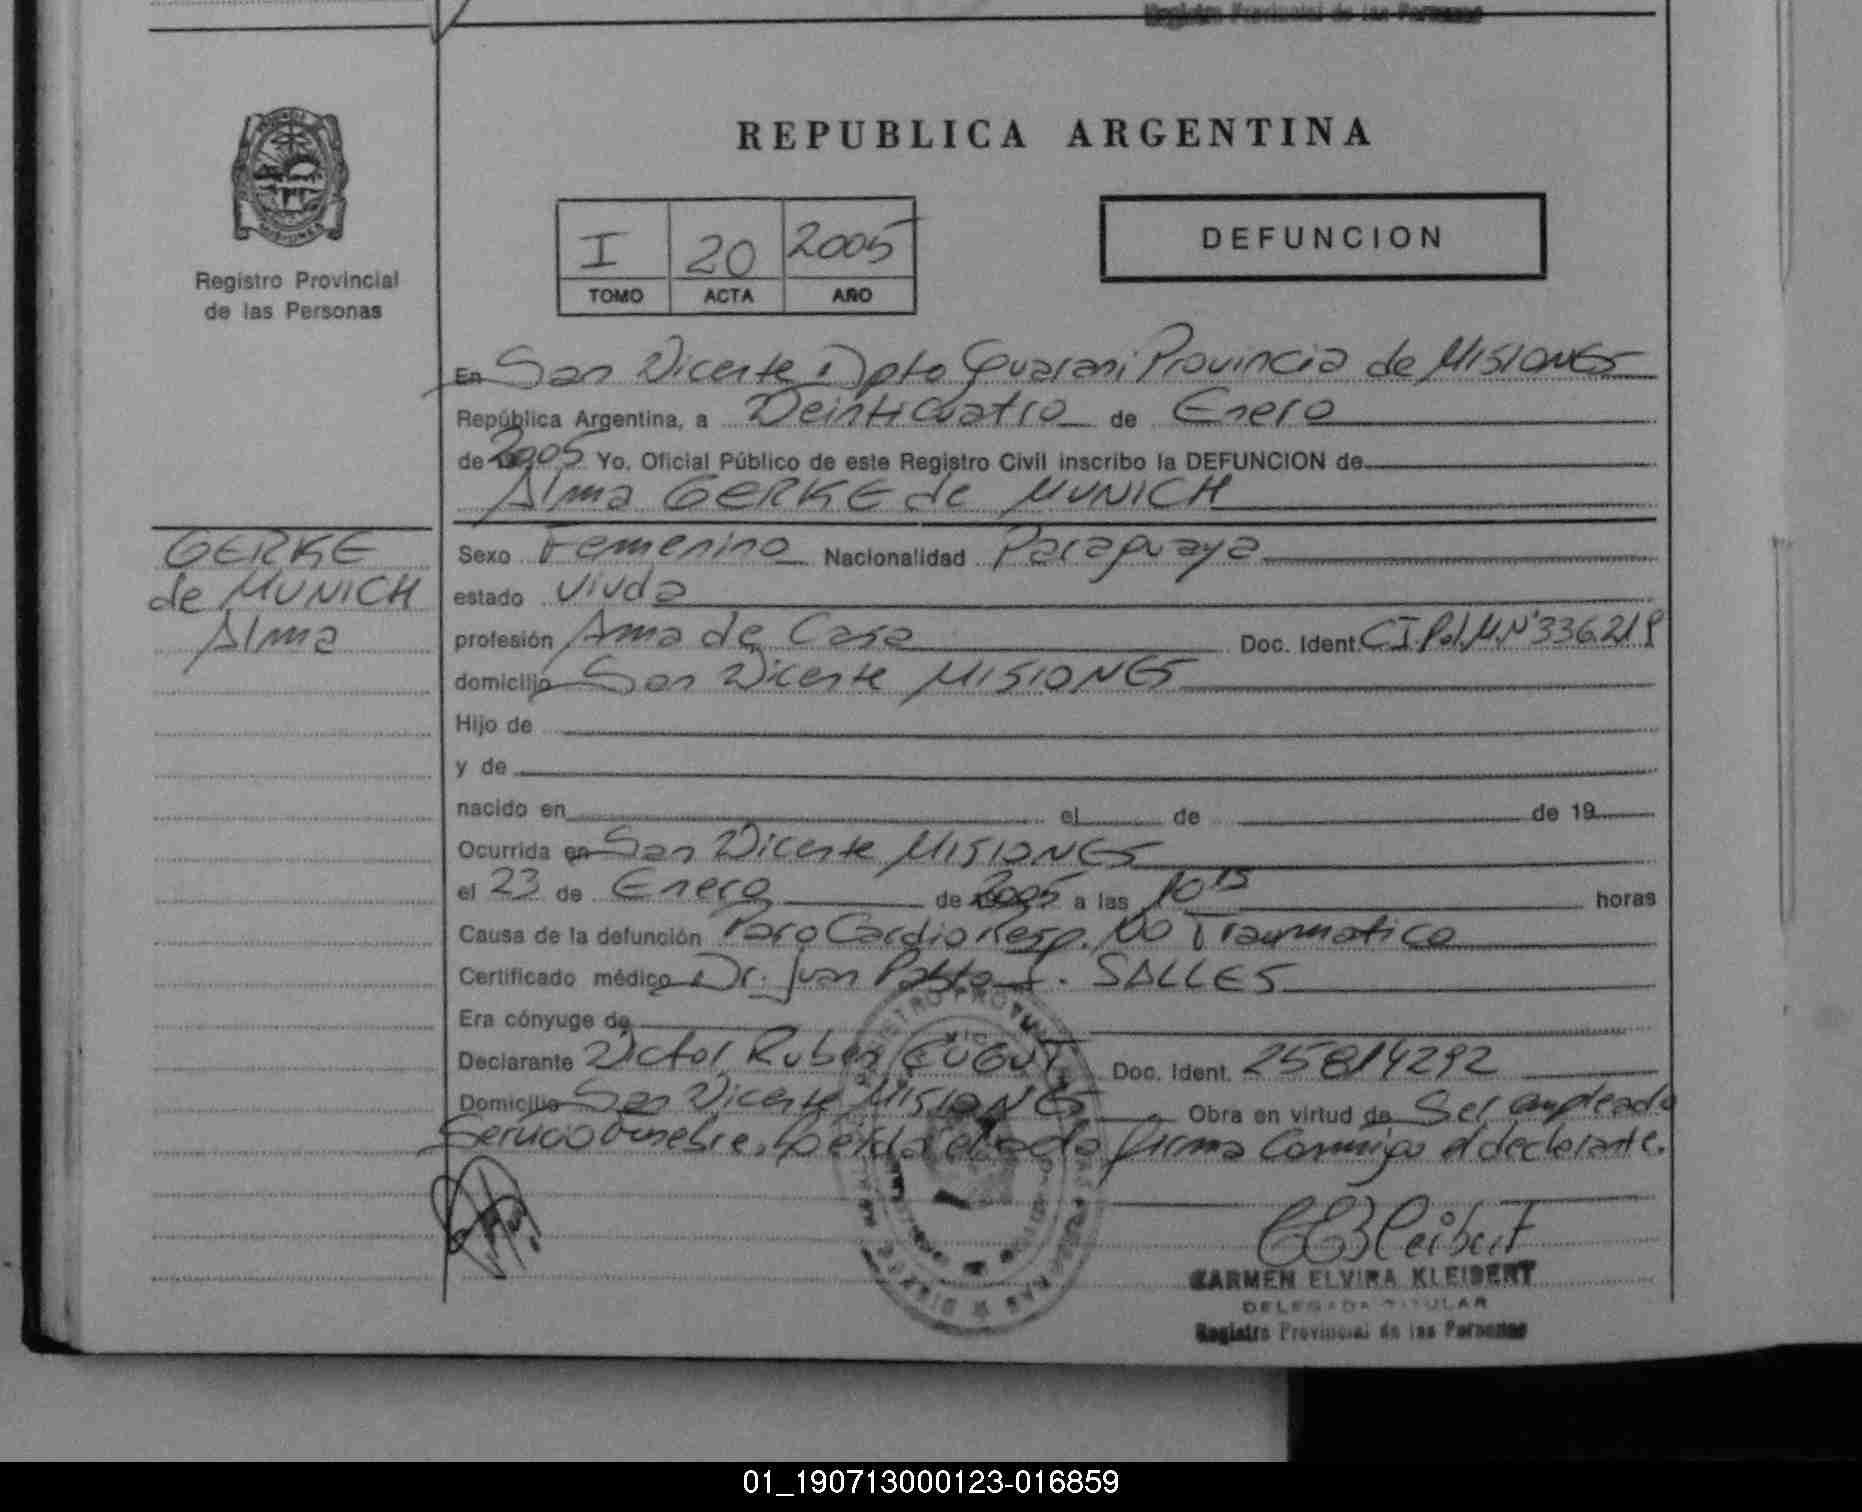 Registro Provincial de las Personas
REPUBLICA ARGENTINA
Registro Provincial
de las Personas
I 20 2005
TOMO ACTA AÑO
DEFUNCION
En San Vicente Dpto Guarani Provincia de MISIONES
República Argentina, a Veinticuatro de Enero
de 2005 Yo, Oficial Público de este Registro Civil inscribo la DEFUNCION de
Alma GERKE de MUNICH
GERKE
de MUNICH
Alma
Sexo Femenino Nacionalidad Paraguaya
estado viuda
profesión Ama de Casa Doc. Ident. CI.Pol.M.Nº336.219
domicilio San Vicente MISIONES
Hijo de
y de
nacido en el de de 19
Ocurrida en San Vicente MISIONES
el 23 de Enero de 2005 a las 10 15 horas
Causa de la defunción Paro Cardio Resp. No Traumatico
Certificado médico Dr. Juan Pablo SALLES
Era cónyuge de
Declarante Victor Ruben Doc. Ident. 25814292
Domicilio San Vicente MISIONES Obra en virtud de Ser empleado
Servicio funebre. leida el acta firma conmigo el declarante.
CARMEN ELVIRA KLEIBERT
DELEGADA TITULAR
Registro Provincial de las Personas
01_190713000123-016859